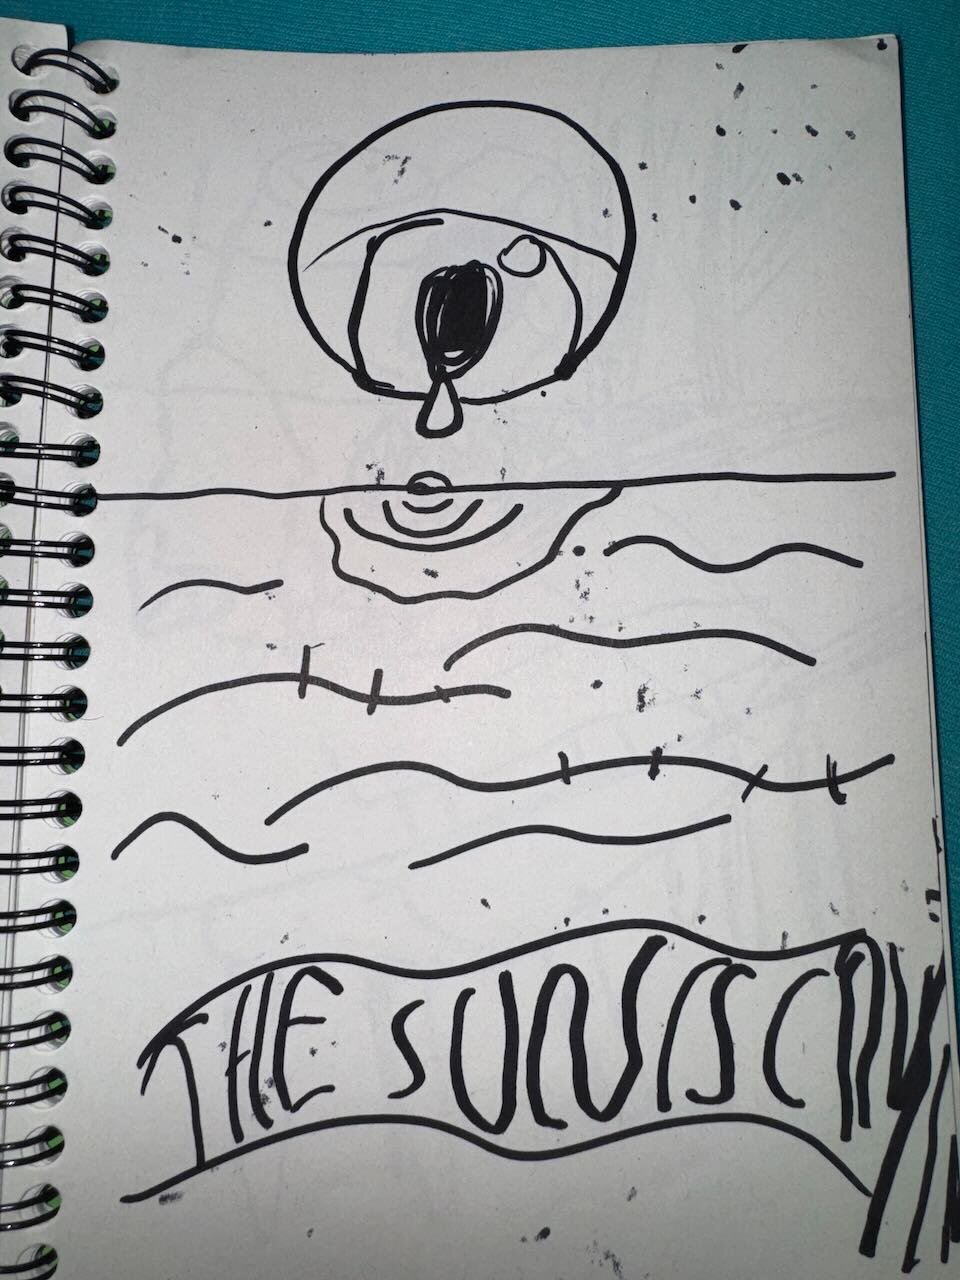 THE SUN IS CRYIN